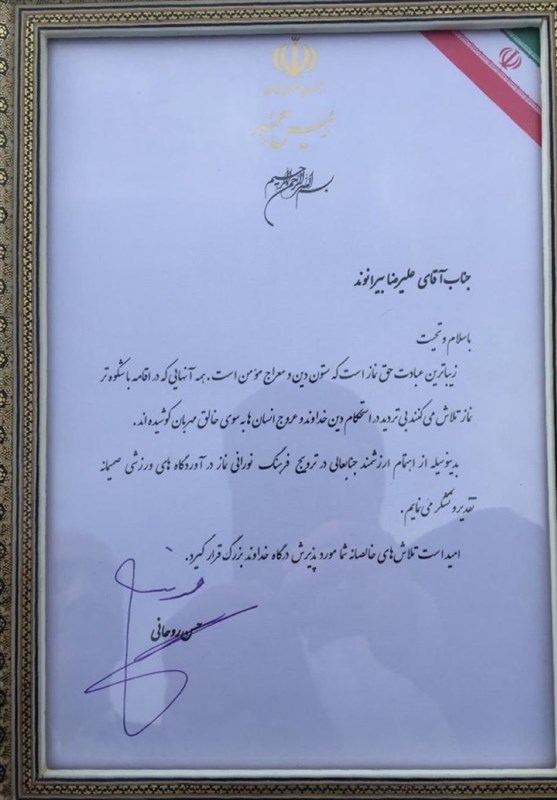 جمهوری اسلامی ایران
رئیس جمهور
بسم الله الرحمن الرحیم
جناب آقای علیرضا بیرانوند
با سلام و تحیت
زیباترین عبادت حق نماز است که ستون دین و معراج مؤمن است. همه آنهایی که در اقامه باشکوه تر
نماز تلاش می کنند بی تردید در استحکام دین خداوند و عروج انسان ها به سوی خالق مهربان کوشیده اند.
بدینوسیله از اهتمام ارزشمند جنابعالی در ترویج فرهنگ نورانی نماز در آوردگاه های ورزشی صمیمانه
تقدیر و تشکر می نمایم.
امید است تلاش های خالصانه شما مورد پذیرش درگاه خداوند بزرگ قرار گیرد.
حسن روحانی